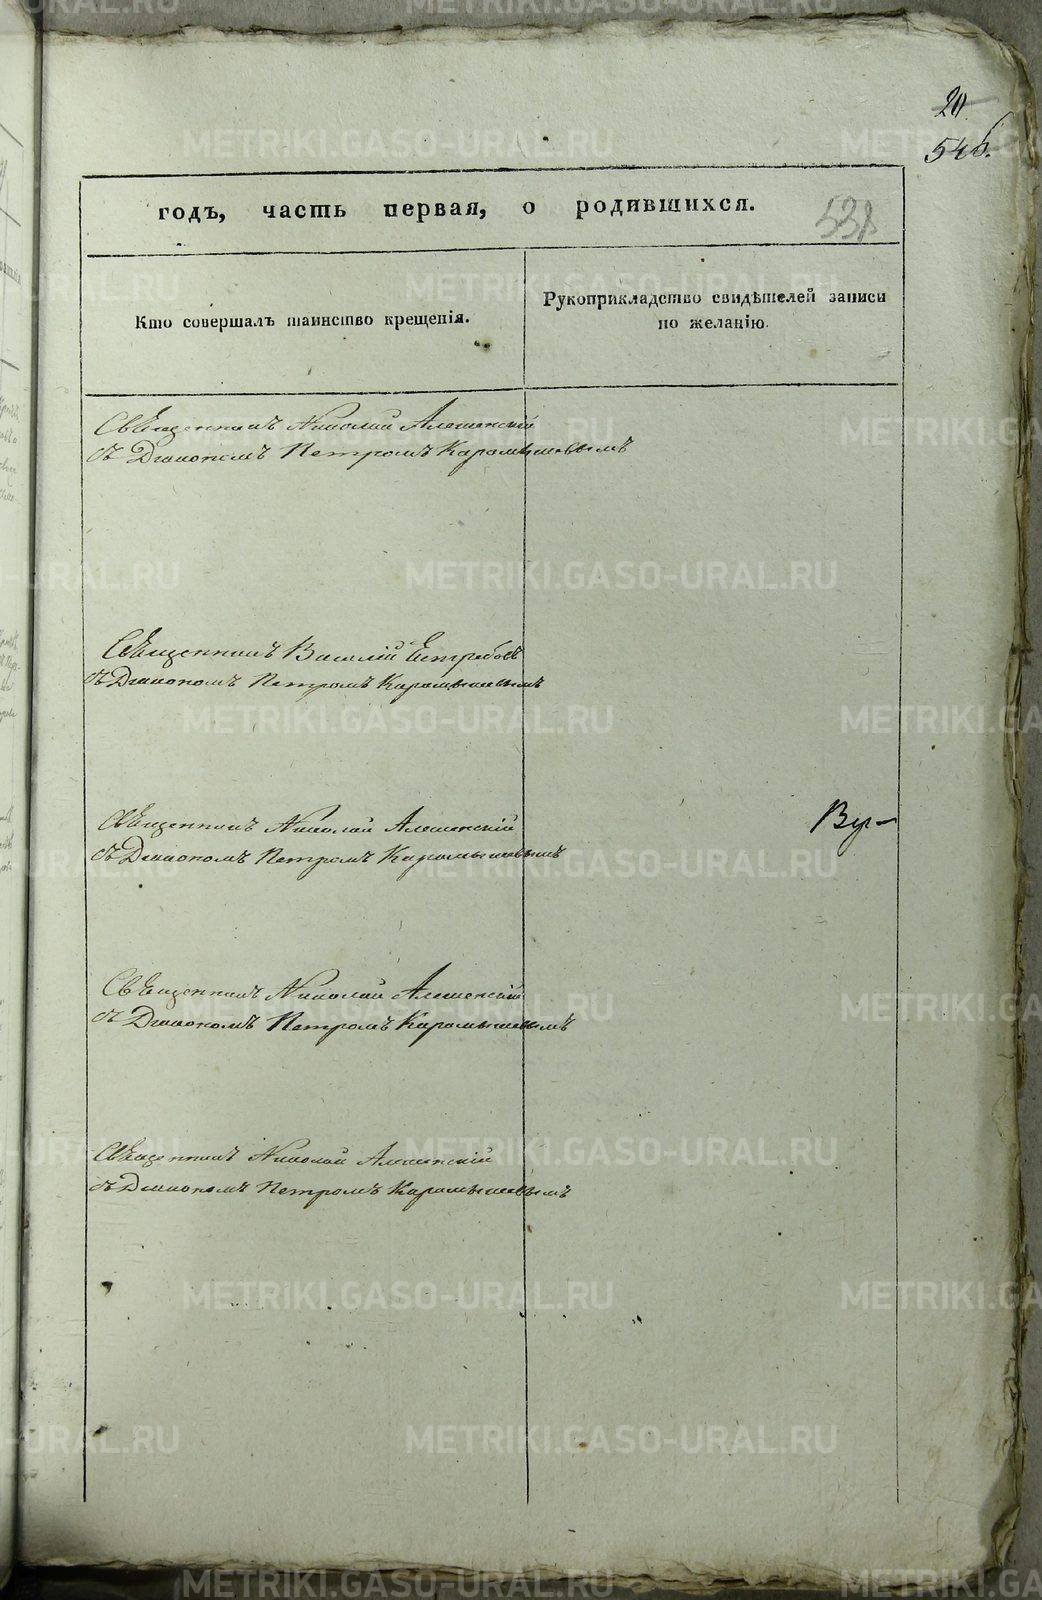 20.
546.
годъ, часть первая, о родившихся.
538
Кто совершалъ таинство крещенія.
Рукоприкладство свидѣтелей записи
по желанію.
Священникъ Николай
съ Діакономъ Петромъ Карамышевымъ
Священникъ Василій Ястребовъ
съ Діакономъ Петромъ Карамышевымъ
Священникъ Николай
съ Діакономъ Петромъ Карамышевымъ
Священникъ Николай
съ Діакономъ Петромъ Карамышевымъ
Священникъ Николай
съ Діакономъ Петромъ Карамышевымъ
METRIKI.GASO-URAL.RU